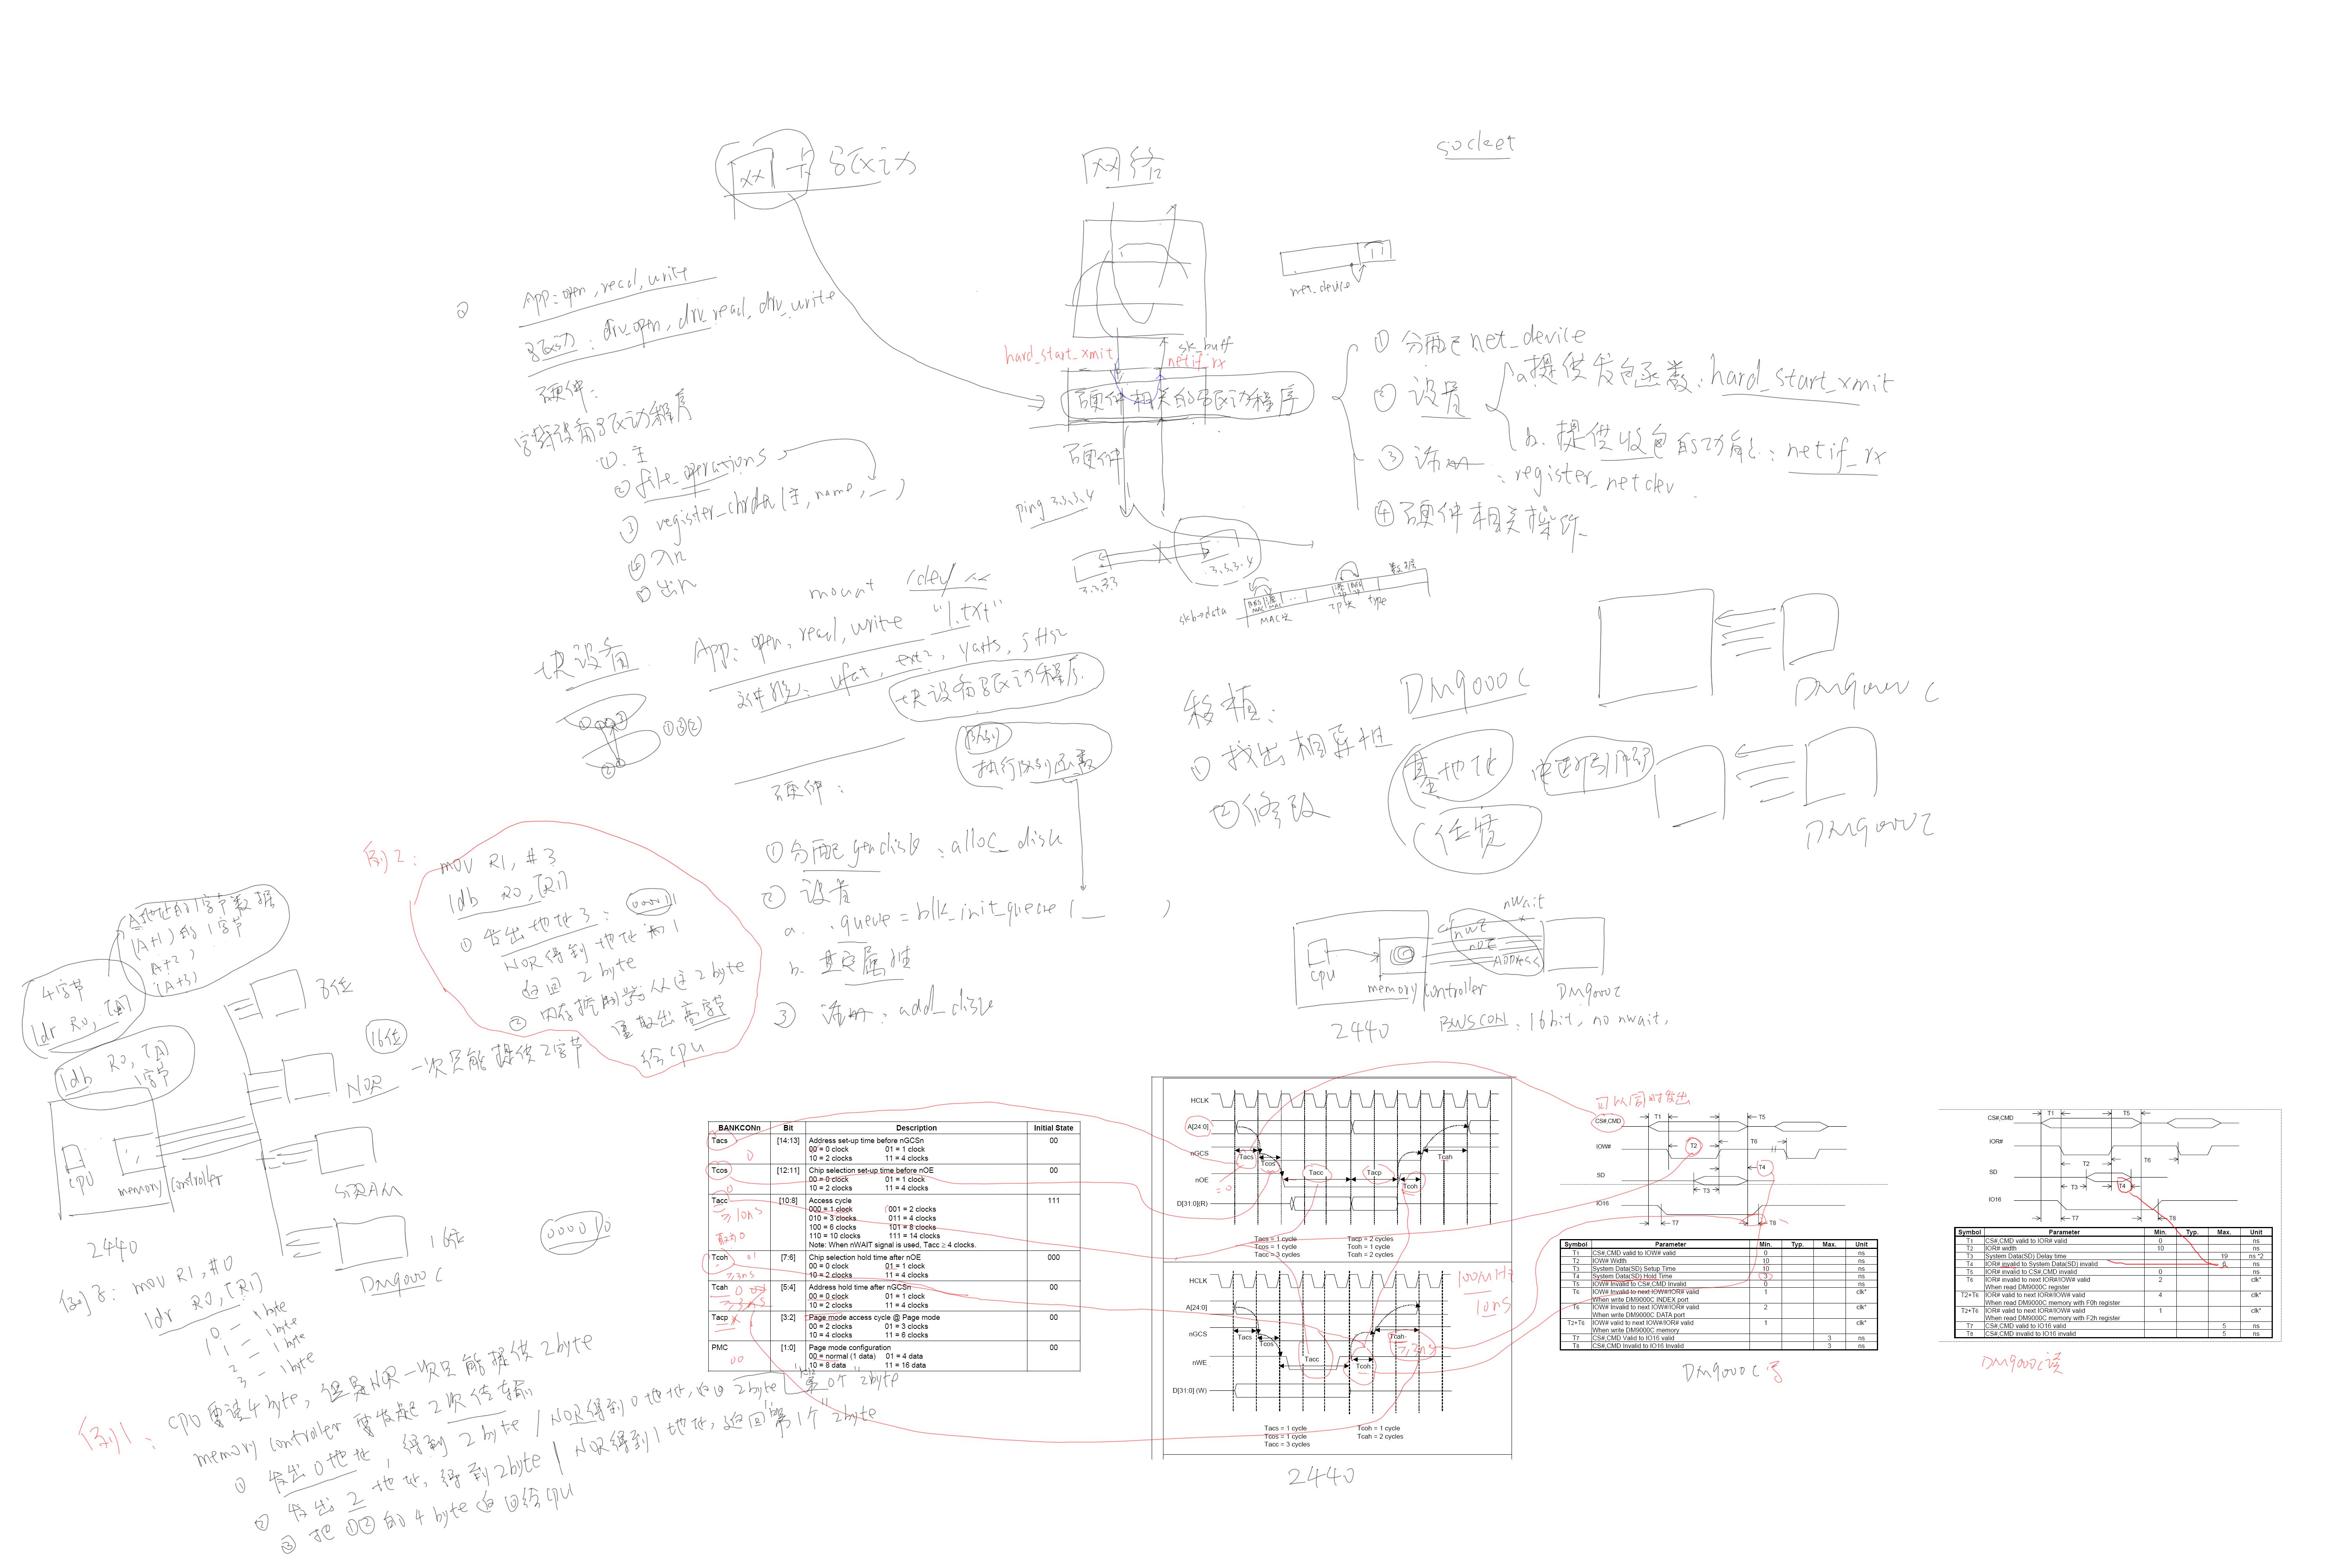 网卡驱动
网络
socket
App: open, read, write
驱动: drv_open, drv_read, drv_write
硬件:
字符设备驱动程序
①. 主
② file_operations
③ register_chrdev(主, name, _)
④ 入口
⑤ 出口
net_device
hard_start_xmit
sk_buff
netif_rx
硬件相关的驱动程序
硬件
ping 3.3.3.4
3.3.3.3
3.3.3.4
① 分配 net_device
② 设置
a. 提供发包函数: hard_start_xmit
b. 提供收包的功能: netif_rx
③ 注册: register_netdev
④ 硬件相关操作
skb->data
目的MAC
源MAC
...
源IP
目的IP
数据
MAC头
IP头
type
mount /dev/
块设备
App: open, read, write "1.txt"
文件系统: vfat, ext2, yaffs, jffs2
块设备驱动程序
①③②
队列
执行队列函数
硬件:
① 分配 gendisk: alloc_disk
② 设置
a. .queue = blk_init_queue( _ )
b. 其它属性
③ 注册: add_disk
移植:
DM9000C
① 找出相异性
② 修改
基地址
中断引脚
位宽
DM9000C
DM9000C
nWait
nWE
nOE
ADDRESS
CPU
memory controller
DM9000C
2440
BWSCON: 16bit, no nwait,
例2:
mov R1, #3
ldb R0, [R1]
① 发出地址3: 000011
NOR得到地址为1
返回2byte
② 内存控制器从这2byte
里取出高字节
给CPU
A地址的1字节数据
(A+1)的1字节
(A+2)
(A+3)
4字节
ldr R0, [A]
ldb R0, [A]
1字节
CPU
memory controller
2440
8位
16位
NOR 一次只能提供2字节
SDRAM
16位
DM9000C
000010
例子: mov R1, #0
ldr R0, [R1]
0 — 1byte
1 — 1byte
2 — 1byte
3 — 1byte
例1:
CPU要读4byte, 但是NOR一次只能提供2byte
memory controller要发起2次传输
① 发出0地址, 得到2byte / NOR得到0地址, 返回2byte "第0个"2byte
② 发出2地址, 得到2byte / NOR得到1地址, 返回"第1个"2byte
③ 把①②的4byte返回给CPU
BANKCONn Bit Description Initial State
Tacs [14:13] Address set-up time before nGCSn 00
00 = 0 clock 01 = 1 clock
10 = 2 clocks 11 = 4 clocks
0
Tcos [12:11] Chip selection set-up time before nOE 00
00 = 0 clock 01 = 1 clock
10 = 2 clocks 11 = 4 clocks
0
Tacc [10:8] Access cycle 111
000 = 1 clock 001 = 2 clocks
010 = 3 clocks 011 = 4 clocks
100 = 6 clocks 101 = 8 clocks
110 = 10 clocks 111 = 14 clocks
Note: When nWAIT signal is used, Tacc ≥ 4 clocks.
≥10ns
Tcoh [7:6] Chip selection hold time after nOE 000
00 = 0 clock 01 = 1 clock
10 = 2 clocks 11 = 4 clocks
01
≥3ns
Tcah [5:4] Address hold time after nGCSn 00
00 = 0 clock 01 = 1 clock
10 = 2 clocks 11 = 4 clocks
Tacp [3:2] Page mode access cycle @ Page mode 00
00 = 2 clocks 01 = 3 clocks
10 = 4 clocks 11 = 6 clocks
PMC [1:0] Page mode configuration 00
00 = normal (1 data) 01 = 4 data
10 = 8 data 11 = 16 data
00
HCLK
A[24:0]
nGCS
Tacs
Tcos
Tacc
Tacp
Tcah
nOE
Tcoh
=0
D[31:0](R)
Tacs = 1 cycle Tacp = 2 cycles
Tcos = 1 cycle Tcoh = 1 cycle
Tacc = 3 cycles Tcah = 2 cycles
HCLK
A[24:0]
nGCS
Tacs
Tcos
Tacc
Tcah
nWE
Tcoh
≥3ns
D[31:0] (W)
Tacs = 1 cycle Tcoh = 1 cycle
Tcos = 1 cycle Tcah = 2 cycles
Tacc = 3 cycles
100MHz
10ns
2440
可以同时发出
CS#,CMD
IOW#
SD
IO16
T1
T5
T2
T6
T4
T3
T7
T8
Symbol Parameter Min. Typ. Max. Unit
T1 CS#,CMD valid to IOW# valid 0 ns
T2 IOW# Width 10 ns
T3 System Data(SD) Setup Time 10 ns
T4 System Data(SD) Hold Time 3 ns
T5 IOW# Invalid to CS#,CMD Invalid 0 ns
T6 IOW# Invalid to next IOW#/IOR# valid 1 clk*
When write DM9000C INDEX port
T6 IOW# Invalid to next IOW#/IOR# valid 2 clk*
When write DM9000C DATA port
T2+T6 IOW# valid to next IOW#/IOR# valid 1 clk*
When write DM9000C memory
T7 CS#,CMD Valid to IO16 valid 3 ns
T8 CS#,CMD Invalid to IO16 Invalid 3 ns
DM9000C写
CS#,CMD
IOR#
SD
IO16
T1
T5
T2
T6
T3
T4
T7
T8
Symbol Parameter Min. Typ. Max. Unit
T1 CS#,CMD valid to IOR# valid 0 ns
T2 IOR# width 10 ns
T3 System Data(SD) Delay time 19 ns *2
T4 IOR# invalid to System Data(SD) invalid 6 ns
T5 IOR# invalid to CS#,CMD invalid 0 ns
T6 IOR# invalid to next IOR#/IOW# valid 2 clk*
When read DM9000C register
T2+T6 IOR# valid to next IOR#/IOW# valid 4 clk*
When read DM9000C memory with F0h register
T2+T6 IOR# valid to next IOR#/IOW# valid 1 clk*
When read DM9000C memory with F2h register
T7 CS#,CMD valid to IO16 valid 5 ns
T8 CS#,CMD invalid to IO16 invalid 5 ns
DM9000C读